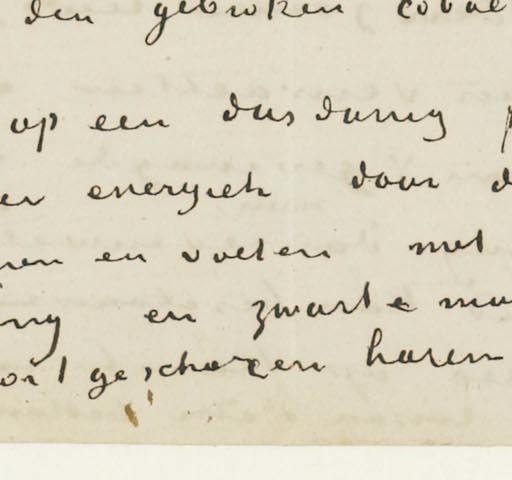 den gebroken cobal
op een dusdanig p
er energiek door d
nen en voeten met
ing en zwarte mu
ort geschoren haren